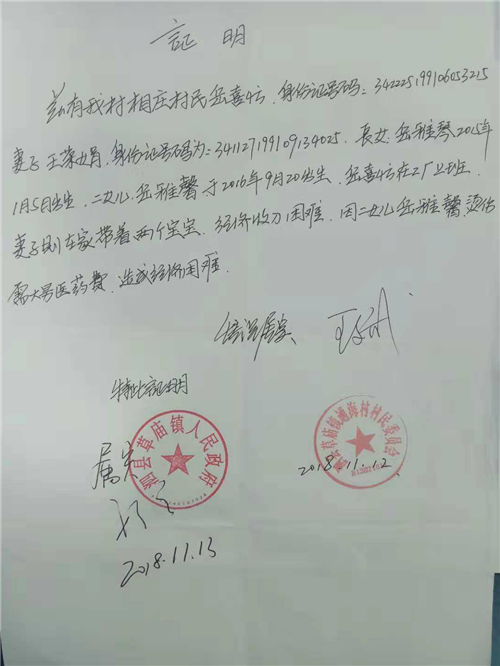 证明
兹有我村相庄村民岳喜云，身份证号码：342225199106053215
妻子王荣娟，身份证号码为：341127199109134025，長女岳雅琴2015年
1月5日出生，二女儿岳雅馨于2016年9月20出生，岳喜云在工厂上班
妻子则在家带着两个宝宝，经济收入困难，因二女儿岳雅馨烫伤
需大笔医药费，造成经济困难．
情况属实
特此证明
泗县草庙镇人民政府
草庙镇通海村村民委员会
属实
2018.11.12
2018.11.13